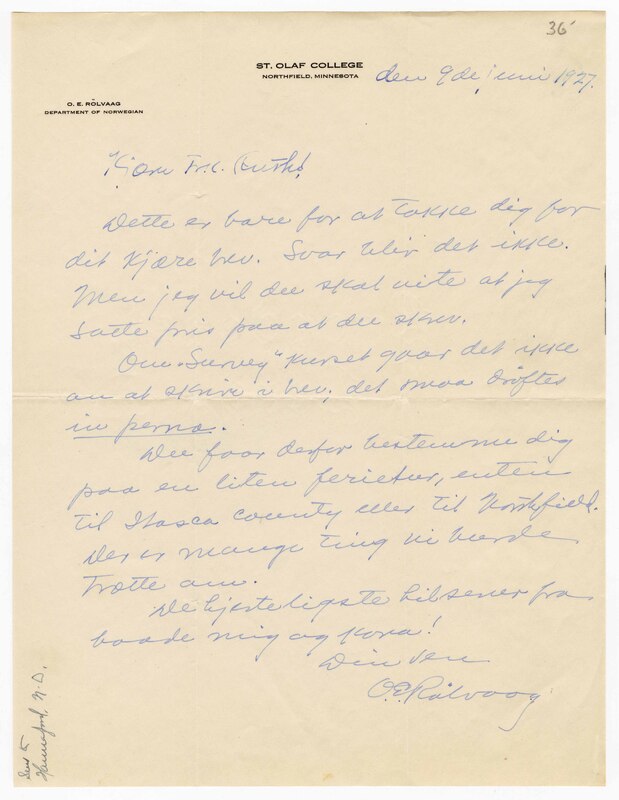 36
ST. OLAF COLLEGE
NORTHFIELD, MINNESOTA
den 9de juni 1927.
O. E. RÖLVAAG
DEPARTMENT OF NORWEGIAN
Kjære Frk.
Dette er bare for at takke dig for
dit kjære brev. Svar blir det ikke.
Men jeg vil du skal vite at jeg
satte pris paa at du skrev.
Om "Survey" kurset gaar det ikke
an at skrive i brev, det maa drøftes
in persona.
Du faar derfor bestemme dig
paa en liten ferietur, enten
til Itasca County eller til Northfield.
Der er mange ting vi burde
trætte om.
De hjerteligste hilsener fra
baade mig og kona!
Din ven
O.E. Rölvaag
Sent to
Hannaford, N.D.